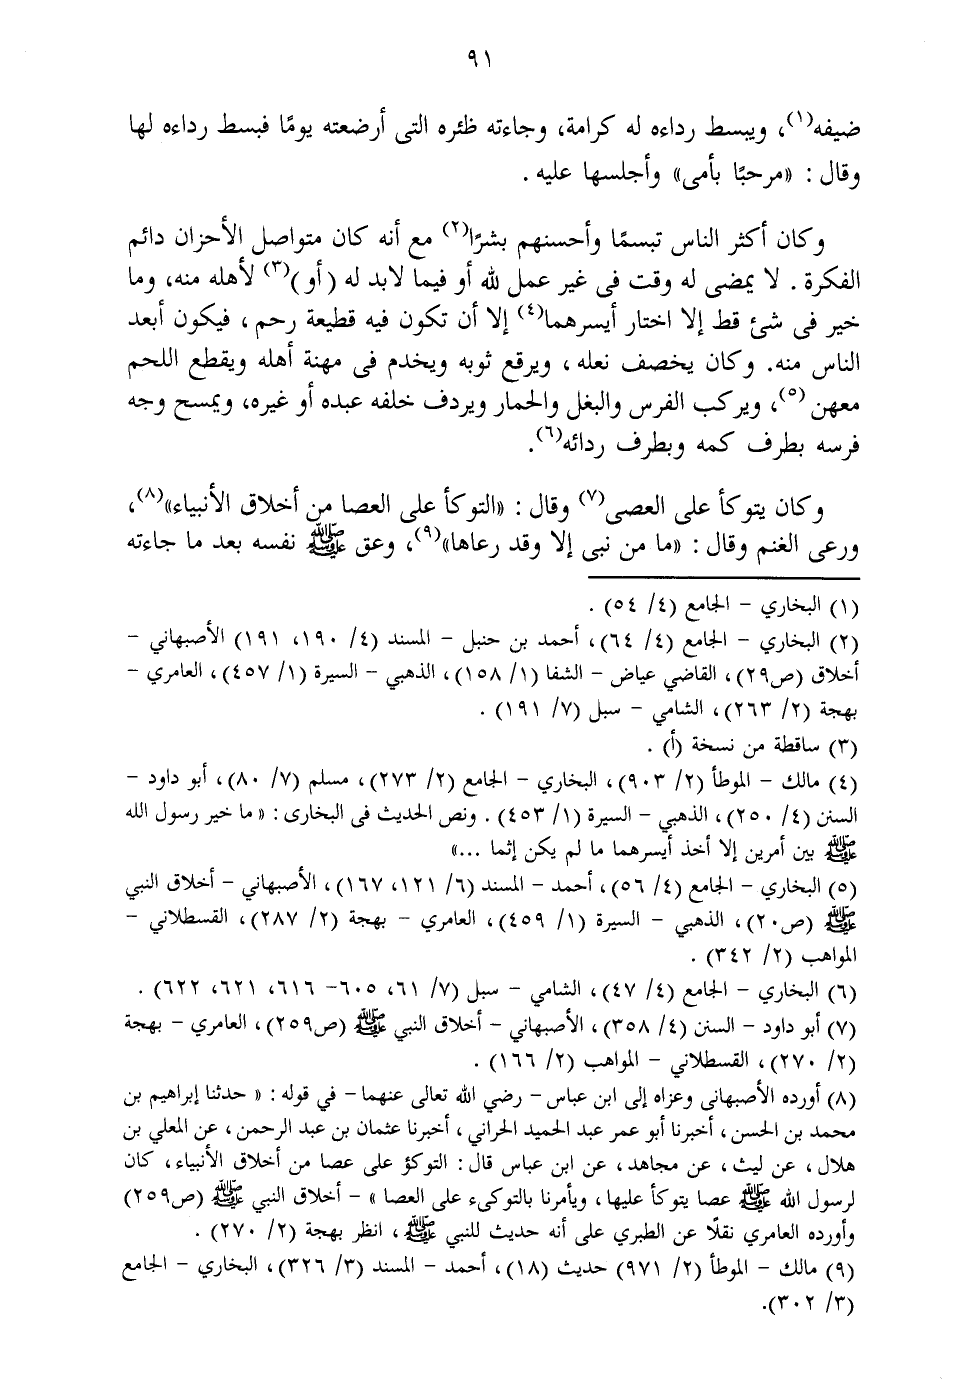 ٩١
ضيفه(١)، ويبسط رداءه له كرامة، وجاءته ظئره التى أرضعته يومًا فبسط رداءه لها
وقال : «مرحبًا بأمى» وأجلسها عليه .
وكان أكثر الناس تبسمًا وأحسنهم بشرًا(٢) مع أنه كان متواصل الأحزان دائم
الفكرة . لا يمضى له وقت فى غير عمل لله أو فيما لابد له (أو)(٣) لأهله منه، وما
خير فى شئ قط إلا اختار أيسرهما(٤) إلا أن تكون فيه قطيعة رحم، فيكون أبعد
الناس منه. وكان يخصف نعله، ويرقع ثوبه ويخدم فى مهنة أهله ويقطع اللحم
معهن(٥)، ويركب الفرس والبغل والحمار ويردف خلفه عبده أو غيره، ويمسح وجه
فرسه بطرف كمه وبطرف ردائه(٦).
وكان يتوكأ على العصى(٧) وقال : «التوكأ على العصا من أخلاق الأنبياء»(٨)،
ورعى الغنم وقال : «ما من نبى إلا وقد رعاها»(٩)، وعق ﷺ نفسه بعد ما جاءته
(١) البخاري – الجامع (٤/ ٥٤) .
(٢) البخاري – الجامع (٤/ ٦٤)، أحمد بن حنبل – المسند (٤/ ١٩٠، ١٩١) الأصبهاني –
أخلاق (ص٢٩)، القاضي عياض – الشفا (١/ ١٥٨)، الذهبي – السيرة (١/ ٤٥٧)، العامري –
بهجة (٢/ ٢٦٣)، الشامي – سبل (٧/ ١٩١) .
(٣) ساقطة من نسخة (أ) .
(٤) مالك – الموطأ (٢/ ٩٠٣)، البخاري – الجامع (٢/ ٢٧٣)، مسلم (٧/ ٨٠)، أبو داود –
السنن (٤/ ٢٥٠)، الذهبي – السيرة (١/ ٤٥٣) . ونص الحديث فى البخارى : « ما خير رسول الله
ﷺ بين أمرين إلا أخذ أيسرهما ما لم يكن إثما ...»
(٥) البخاري – الجامع (٤/ ٥٦)، أحمد – المسند (٦/ ١٢١، ١٦٧)، الأصبهاني – أخلاق النبي
ﷺ (ص٢٠)، الذهبي – السيرة (١/ ٤٥٩)، العامري – بهجة (٢/ ٢٨٧)، القسطلاني –
المواهب (٢/ ٣٤٢) .
(٦) البخاري – الجامع (٤/ ٤٧)، الشامي – سبل (٧/ ٦١، ٦٠٥– ٦١٦، ٦٢١، ٦٢٢) .
(٧) أبو داود – السنن (٤/ ٣٥٨)، الأصبهاني – أخلاق النبي ﷺ (ص٢٥٩)، العامري – بهجة
(٢/ ٢٧٠)، القسطلاني – المواهب (٢/ ١٦٦) .
(٨) أورده الأصبهانى وعزاه إلى ابن عباس – رضي الله تعالى عنهما – في قوله : « حدثنا إبراهيم بن
محمد بن الحسن، أخبرنا أبو عمر عبد الحميد الحراني، أخبرنا عثمان بن عبد الرحمن، عن المعلي بن
هلال، عن ليث، عن مجاهد، عن ابن عباس قال : التوكؤ على عصا من أخلاق الأنبياء، كان
لرسول الله ﷺ عصا يتوكأ عليها، ويأمرنا بالتوكىء على العصا » – أخلاق النبي ﷺ (ص٢٥٩)
وأورده العامري نقلًا عن الطبري على أنه حديث للنبي ﷺ، انظر بهجة (٢/ ٢٧٠) .
(٩) مالك – الموطأ (٢/ ٩٧١) حديث (١٨)، أحمد – المسند (٣/ ٣٢٦)، البخاري – الجامع
(٣/ ٣٠٢).